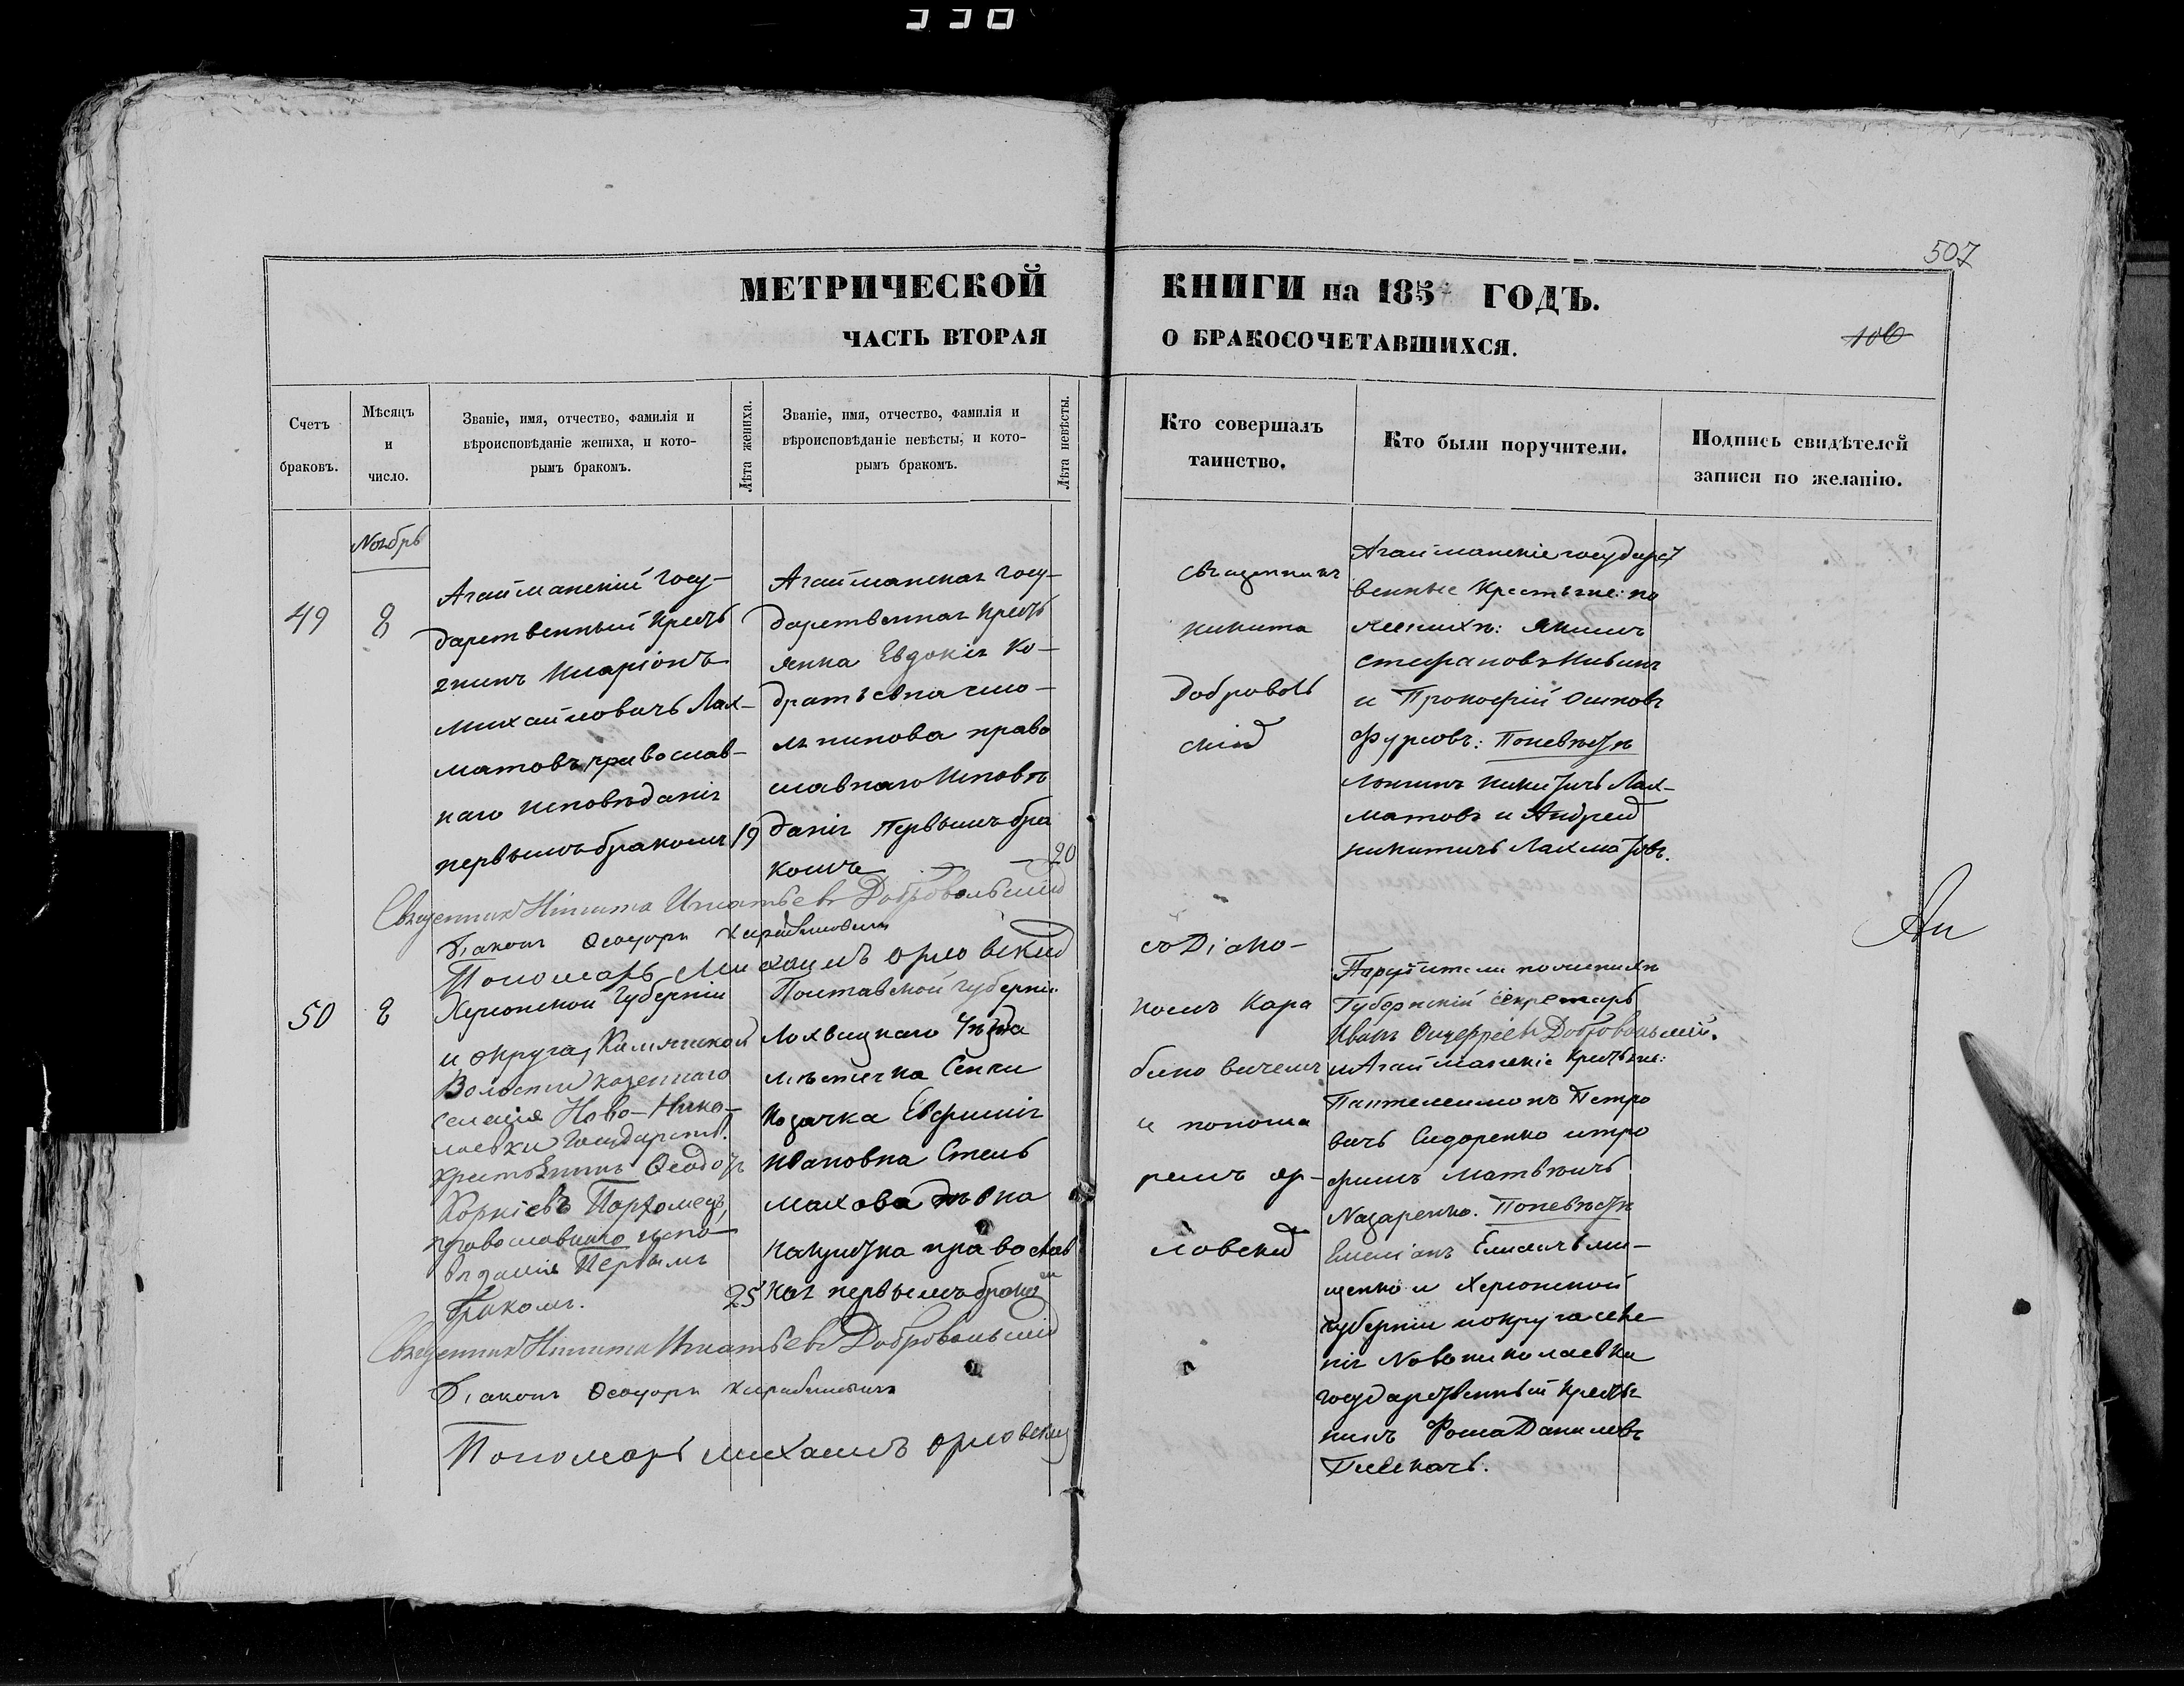 330
507
МЕТРИЧЕСКОЙ КНИГИ на 185 ГОДЪ.
ЧАСТЬ ВТОРАЯ О БРАКОСОЧЕТАВШИХСЯ.
100
Счетъ браковъ.
Мѣсяцъ и число.
Званіе, имя, отчество, фамилія и
вѣроисповѣданіе жениха, и кото-
рымъ бракомъ.
Лѣта жениха.
Званіе, имя, отчество, фамилія и
вѣроисповѣданіе невѣсты, и кото-
рымъ бракомъ.
Лѣта невѣсты.
Кто совершалъ
таинство.
Кто были поручители.
Подпись свидѣтелей
записи по желанію.
Ноябрь
49
8
Агайманскій Госу-
дарственный Кресть
янинъ Иларіонъ
Михайловичъ Лах-
матовъ православ-
наго исповѣданія
первымъ бракомъ
19
Агайманская Госу-
дарственная Кресть
янка Евдокія Ко-
дратьевна
православнаго исповѣ
данія первымъ бра
комъ
20
Священникъ
Никита
Доброволь
скій
Агайманскіе государст
венные Крестьяне: по
женихѣ: Якимъ
Стефановъ
и Прокофій Осиповъ
Фурсовъ: По невѣстѣ
Логинъ Никитичъ Лах-
матовъ и Андрей
Никитичъ Лахматовъ.
Священникъ Никита Игнатьевъ Добровольскій
Діаконъ Ѳеодоръ Карабиновичъ
Пономарь Михаилъ Орловскій
50
8
Херсонской Губерніи
и округа,
Волости казеннаго
селенія Ново-Нико-
лаевки Государств.
крестьянинъ Ѳеодоръ
Корніевъ Пархомецъ,
православнаго испо-
вѣданія Первымъ
бракомъ.
25
Полтавской Губерніи
Лохвицкаго Уѣзда
мѣстечка Сенчи
Козачка Евфимія
Ивановна Стель
махова дѣвка
православ
ная первымъ бракомъ
съ Діако-
номъ Кара
биновичемъ
и понома
ремъ Ор-
ловскій
Поручители по женихѣ
Губернскій секретарь
Иванъ Добровольскій.
и Агайманскіе Крестьяне:
Пантелеимонъ Петро
вичъ Сидоренко и Тро
фимъ Матвѣичъ
Назаренко. По невѣстѣ
Емеліанъ
щенко и Херсонской
губерніи и округа селе-
нія Новониколаевки
государственный крестья
нинъ Фома Даниловъ
Священникъ Никита Игнатьевъ Добровольскій
Діаконъ Ѳеодоръ Карабиновичъ
Пономарь Михаилъ Орловскій